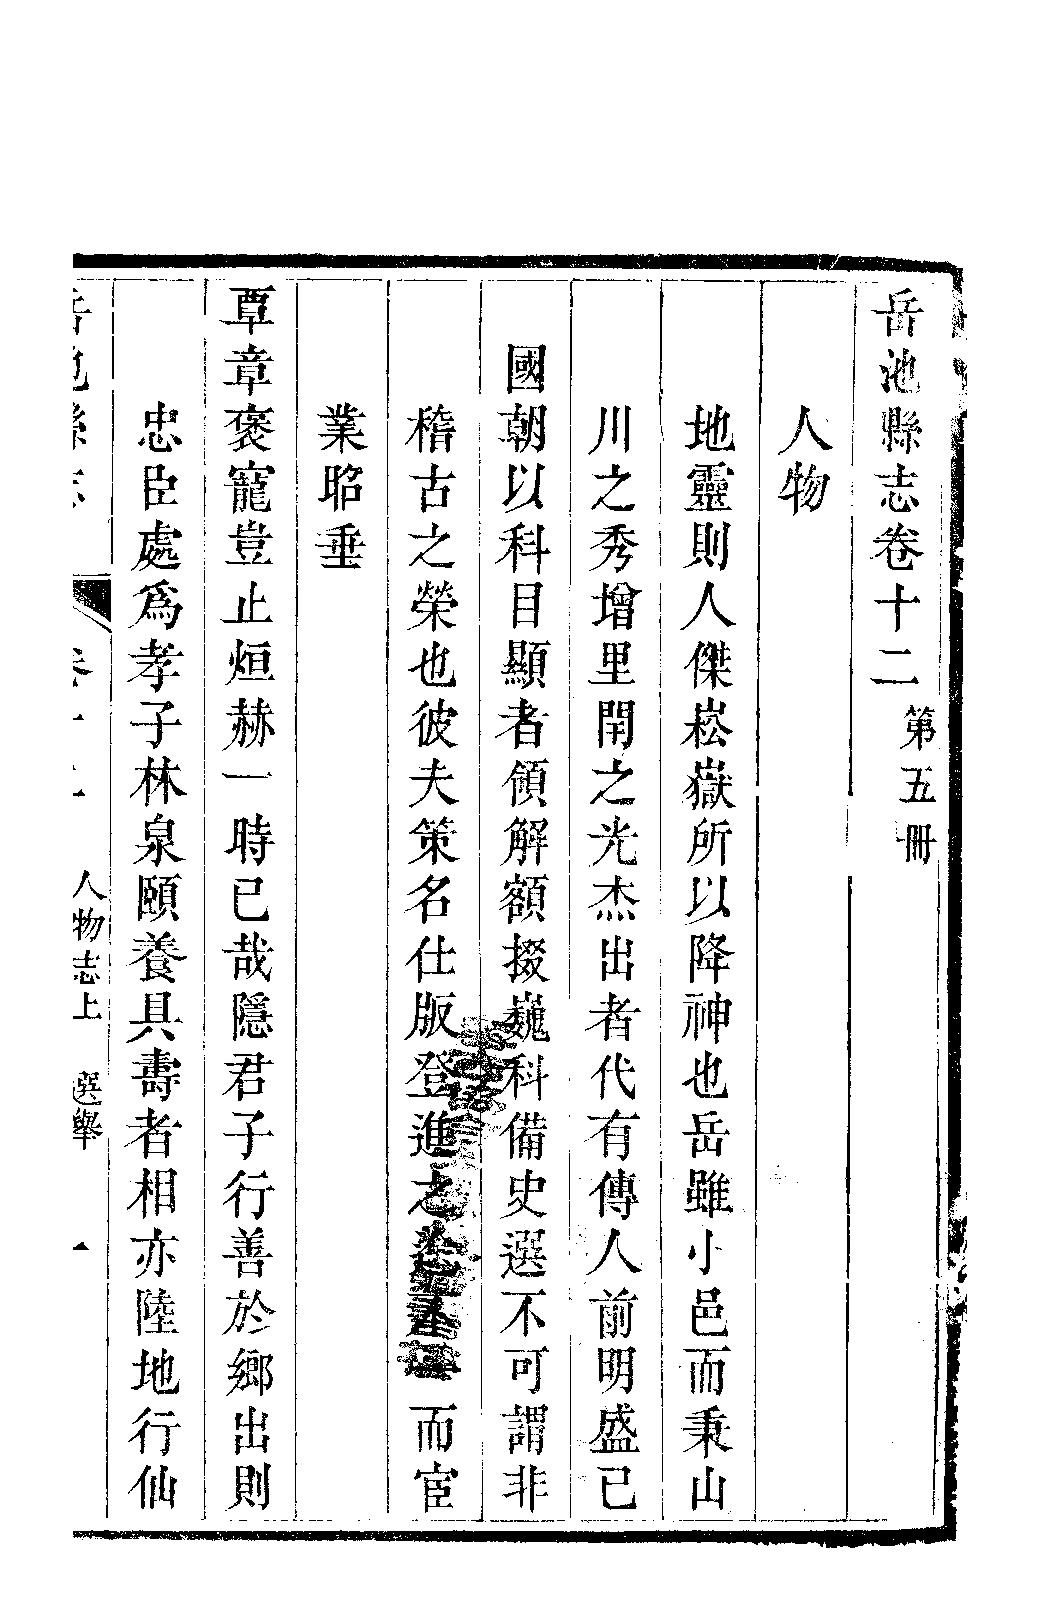 岳池縣志卷十二 第五冊
人物
地靈則人傑崧嶽所以降神也岳雖小邑而秉山
川之秀增里閈之光杰出者代有傳人前明盛已
國朝以科目顯者領解額掇巍科備史選不可謂非
稽古之榮也彼夫策名仕版登進之 而宦
業昭垂
覃章褒寵豈止烜赫一時已哉隱君子行善於鄉出則
忠臣處爲孝子林泉頤養具壽者相亦陸地行仙
岳池縣志 卷十二 人物志上 選舉 一